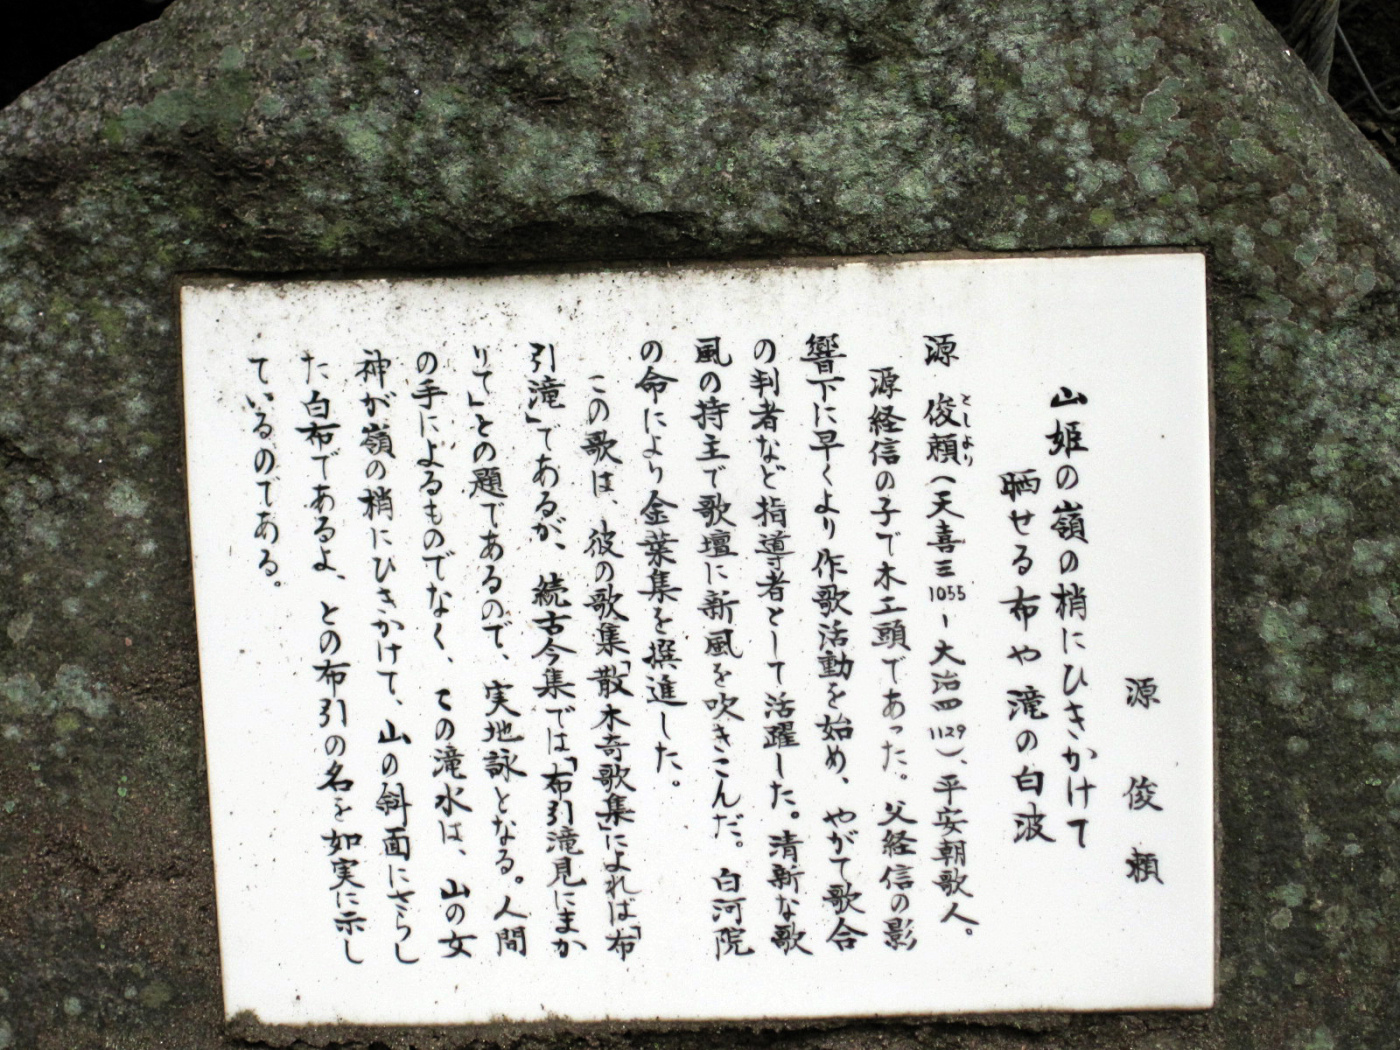 源 俊頼
山姫の嶺の梢にひきかけて
晒せる布や滝の白波
源 俊頼(天喜三1055~大治四1129)、平安朝歌人。
としより
源経信の子で木工頭であった。父経信の影
響下に早くより作歌活動を始め、やがて歌合
の判者など指導者として活躍した。清新な歌
風の持主で歌壇に新風を吹きこんだ。白河院
の命により金葉集を撰進した。
この歌は、彼の歌集「散木奇歌集」によれば「布
引滝」であるが、続古今集では「布引滝見にまか
りて」との題であるので、実地詠となる。人間
の手によるものでなく、この滝水は、山の女
神が嶺の梢にひきかけて、山の斜面にさらし
た白布であるよ、との布引の名を如実に示し
ているのである。